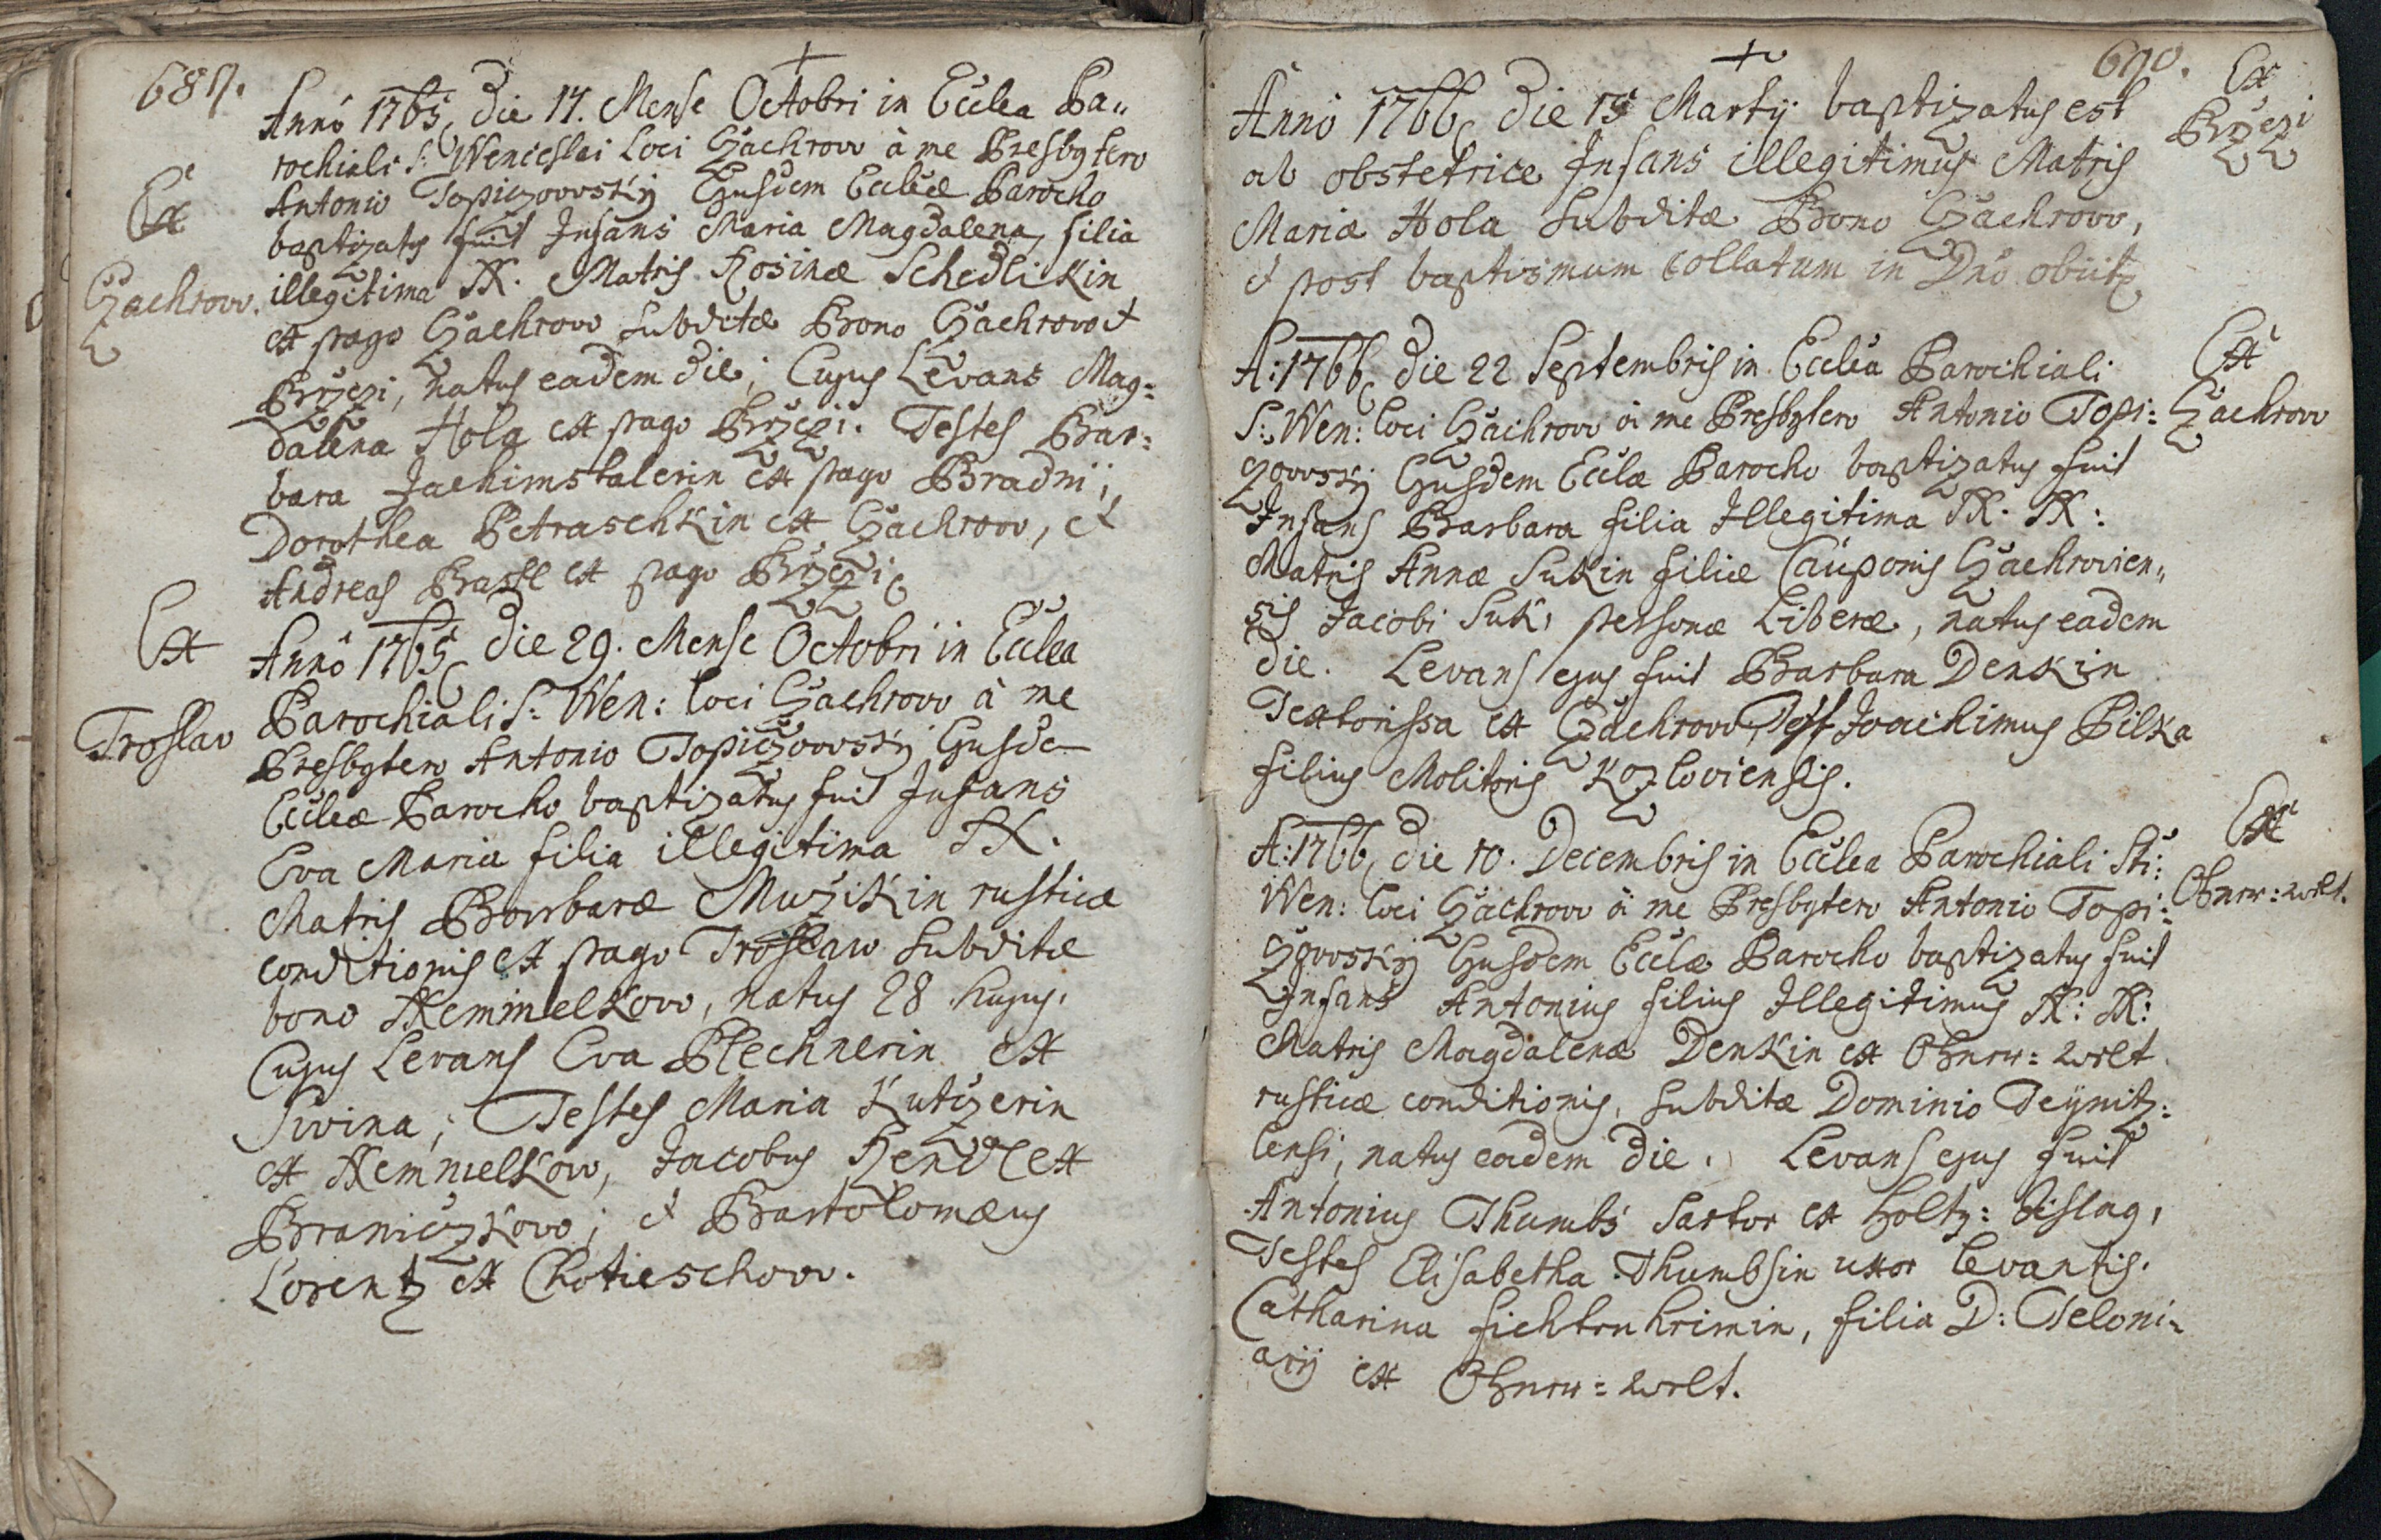 689.
Annô 1765, die 17. Mense Octobri in Ecclea Pa„
rochiali S: Wenceslai Loci Czachrow à me Presbytero
Antonio Topiczowský Ejusdem Eccleæ Parocho
baptizatus fuit Infans Maria Magdalena, filia
illegitima N. Matris Rosinæ Schedlikin
ex pago Czachrow subditæ Bono Czachrow et
Brzezi, natus eadem die; Cujus Levans Mag:
dalena Hola ex pago Brzezi. Testes Bar:
bara Jachimstalerin ex pago Bradni;
Dorothea Petraschkin ex Czachrow, et
Andreas Brassl ex pago Brzezi.
Ex
Czachrow.
Annô 1765, die 29. Mense Octobri in Ecclea
Parochiali S: Wen: loci Czachrow à me
Presbytero Antonio Topiczowský Ejusde
Eccleæ Parocho baptizatus fuit Infans
Eva Maria filia illegitima N.
Matris Barbaræ Muzikin rusticæ
conditionis ex pago Troslaw subditæ
bono Nemmelkow, natus 28 hujus.
Cujus Levans Eva Plechnerin ex
Swina; Testes Maria Kutzerin
ex Nemmelkow, Jacobus Hendl ex
Braniczkow; et Bartolomæus
Lorentz ex Chotieschow.
Ex
Troslav
690.
Annô 1766, die 15 Martij baptizatus est
ab obstetrice Infans illegitimus Matris
Mariæ Hola subditæ Bono Czachrow,
et post baptismum collatum in Dnô obiit.
Ex
Brzezi
A: 1766, die 22 Septembris in Ecclea Parochiali
S: Wen: loci Czachrow à me Presbytero Antonio Topi:
czowský Ejusdem Ecclæ Parocho baptizatus fuit
Infans Barbara filia Illegitima N. N:
Matris Annæ Sukin filiæ Cauponis Czachrovien„
sis Jacobi Suk, personæ Liberæ, natus eadem
die. Levans ejus fuit Barbara Denkin
Textorissa ex Czachrow, Test Joachimus Pilka
filius Molitoris Kozloviensis.
Ex
Czachrow
A: 1766, die 10. Decembris in Ecclea Parochiali Sti:
Wen: loci Czachrow à me Presbytero Antonio Topi:
czowský Ejusdem Ecclæ Parocho baptizatus fuit
Infans Antonius filius Illegitimus N: N:
Matris Magdalenæ Denkin ex
rusticæ conditionis, subditæ Dominio Teÿnitz:
lensi, natus eadem die. Levans ejus fuit
Antonius Thumbs Sartor ex Holtz:
Testes Elisabetha Thumbsin uxor levantis.
Catharina filia D: Teloni:
arij ex
Ex